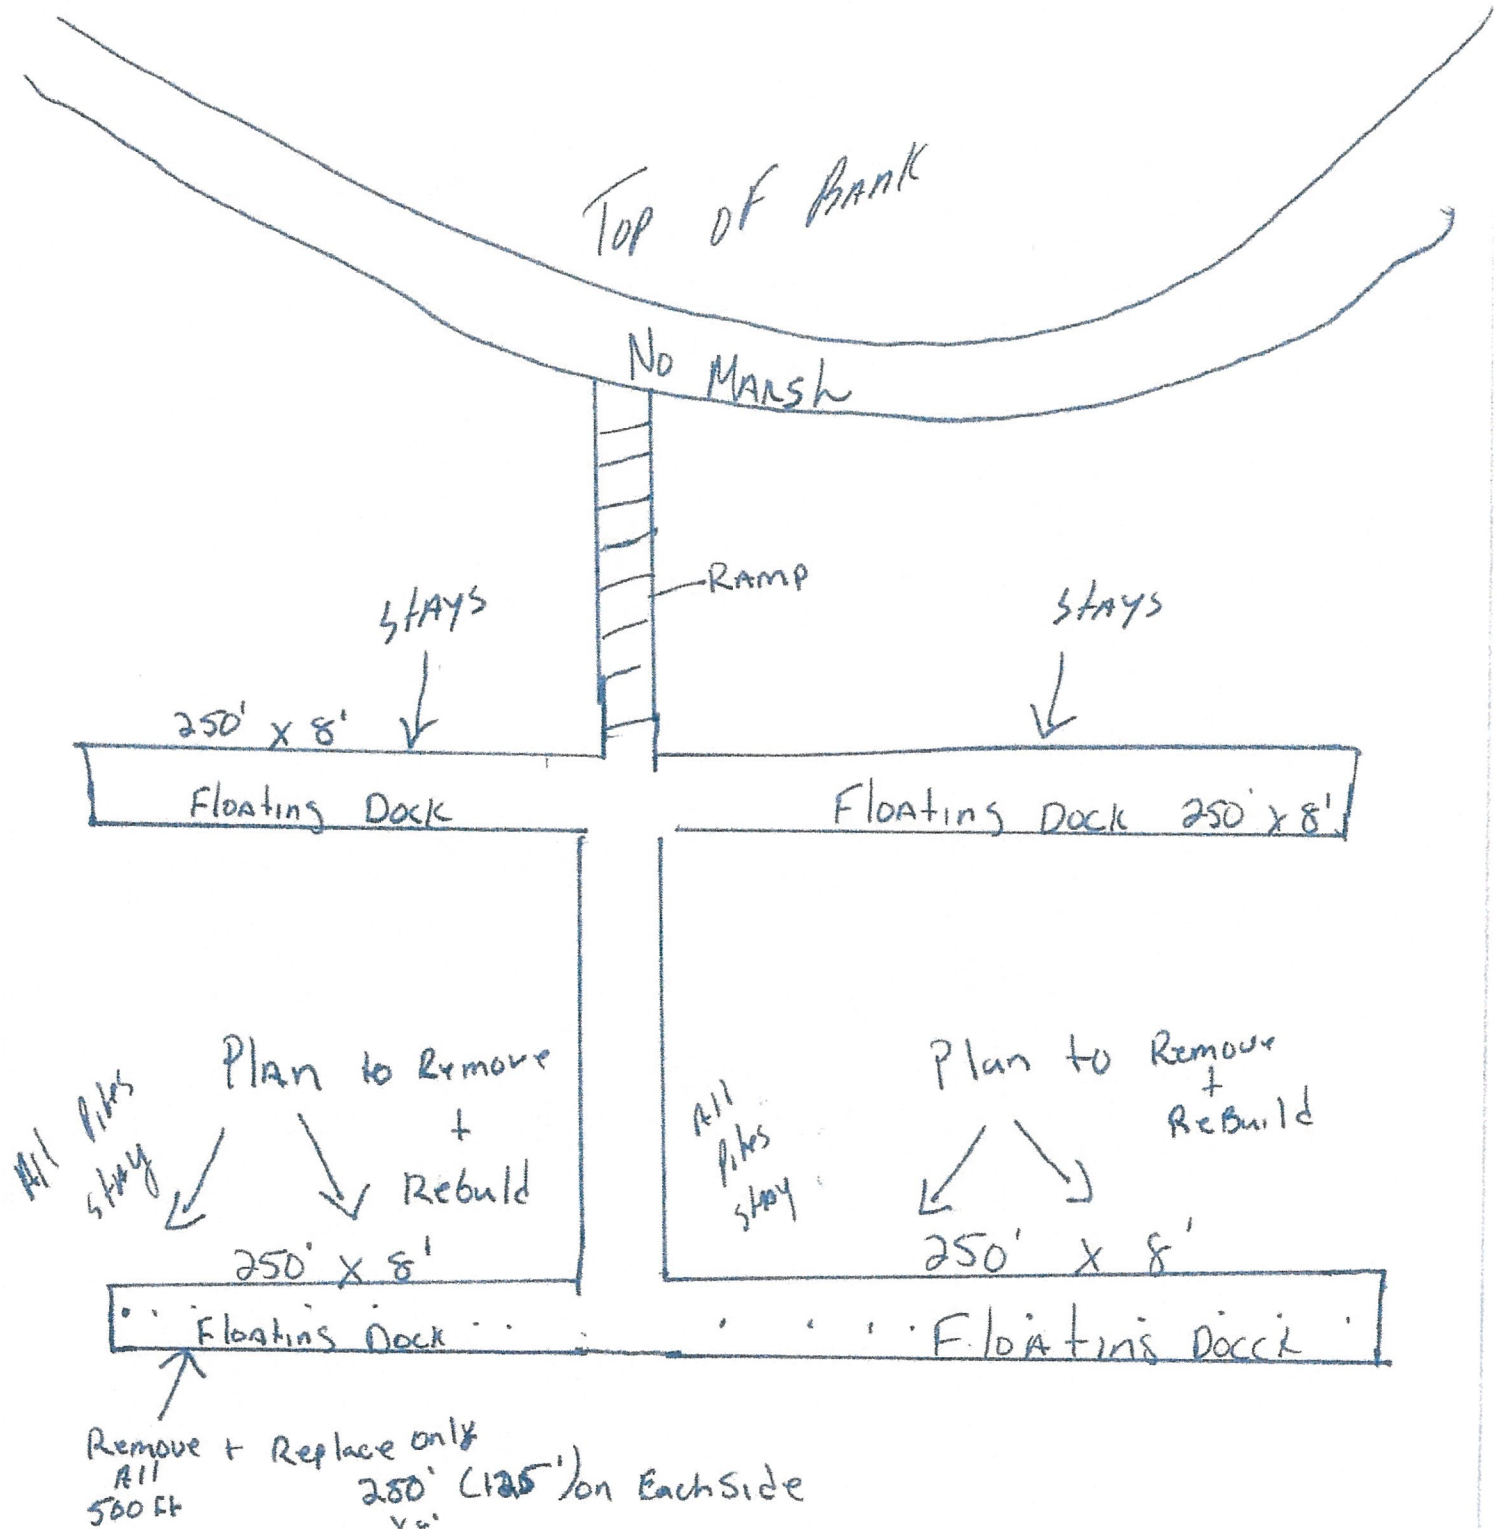 Top of Bank
No Marsh
Ramp
Stays
Stays
250' x 8'
Floating Dock
Floating Dock 250' x 8'
Plan to Remove
+
Rebuild
All Piles
stay
Plan to Remove
+
ReBuild
All
Piles
stay
250' x 8'
250' x 8'
Floating Dock
Floating Docck
Remove + Replace only
All
500 ft
250' (125') on Each Side